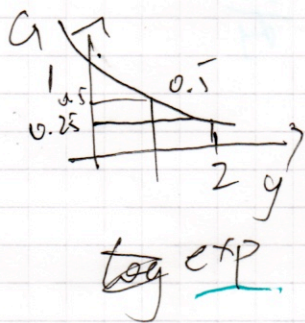 G
1
0.5
0.5
0.25
2 y
log exp